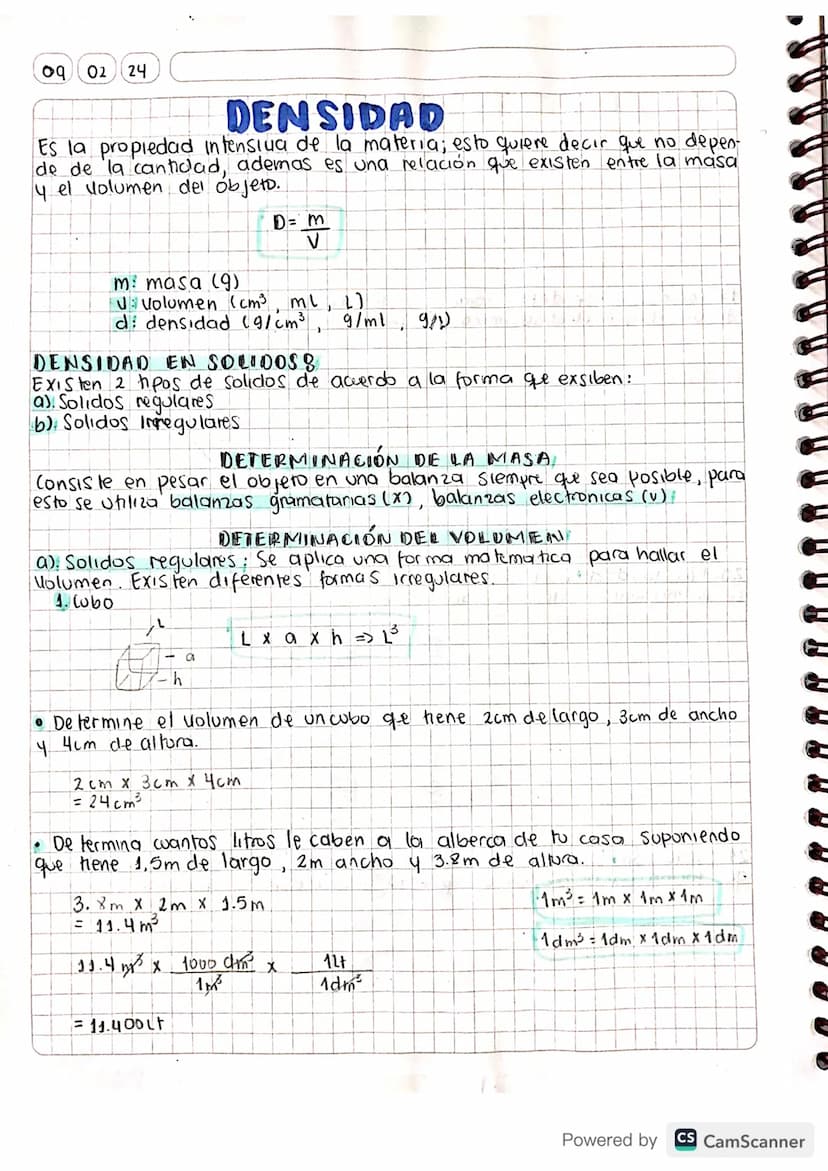 09 02 24
DENSIDAD
Es la propiedad intensiva de la materia; esto quiere decir que no depen-
de de la cantidad, ademas es una relación que existen entre la masa
y el volumen del objeto.
D = m
V
m: masa (g)
v: volumen (cm³, ml, L)
d: densidad (g/cm³, g/ml, g/L)
DENSIDAD EN SOLIDOS:
Existen 2 tipos de solidos de acuerdo a la forma qe exsiben:
a). Solidos regulares
b). Solidos Irregulares
DETERMINACIÓN DE LA MASA
Consiste en pesar el objero en una balanza siempre que sea posible, para
esto se utiliza balanzas gramatarias (x), balanzas electronicas (v)
DETERMINACIÓN DEL VOLUMEN
a). Solidos regulares: Se aplica una forma matematica para hallar el
Volumen. Existen diferentes formas irregulares.
1. Cubo
L
a
h
L x a x h => L³
• Determine el volumen de un cubo qe tiene 2cm de largo, 3cm de ancho
y 4cm de altura.
2cm x 3cm x 4cm
= 24cm³
• Determina cuantos litros le caben a la alberca de tu casa suponiendo
que tiene 1,5m de largo, 2m ancho y 3.8m de altura.
3.8m x 2m x 1.5m
= 11.4m³
1m³ = 1m x 1m x 1m
1dm³ = 1dm x 1dm x 1dm
11.4 m³ x 1000 dm³ x 1Lt
1m³ 1dm³
= 11.400Lt
Powered by CS CamScanner